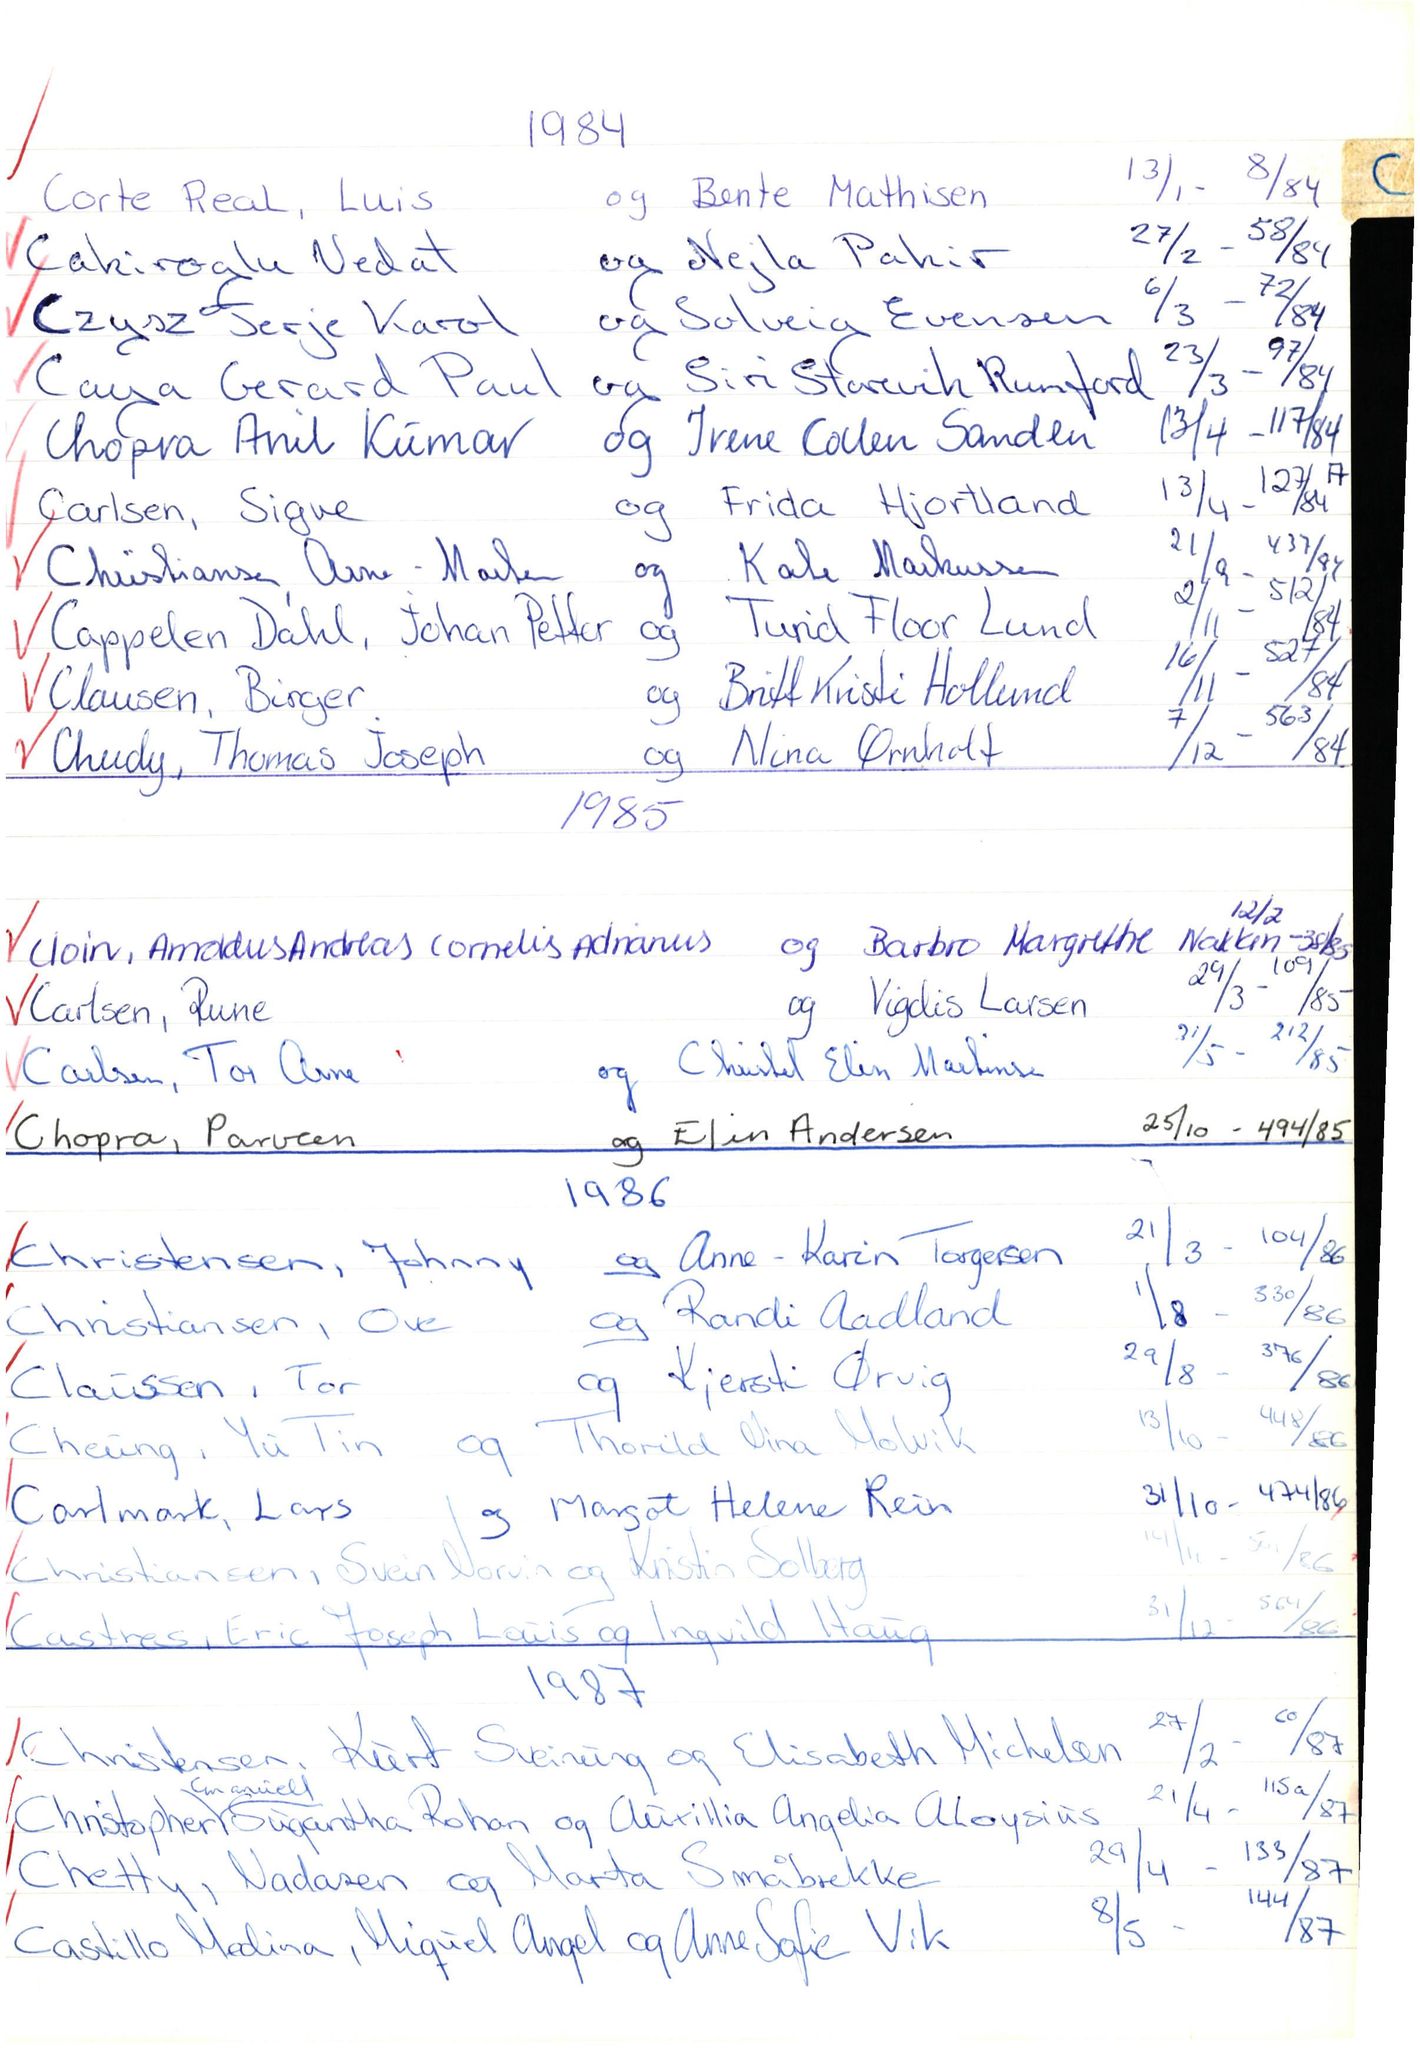 1984
C
Corte Real, Luis og Bente Mathisen 13/1 - 8/84
Cakiroglu Vedat og Nejla Pakir 27/2 - 58/84
Czysz Terje Karol og Solveig Evensen 6/3 - 72/84
Caya Gerard Paul og Siri Storevik Rumford 23/3 - 97/84
Chopra Anil Kumar og Irene Collen Sanden 13/4 - 117/84
Carlsen, Sigve og Frida Hjortland 13/4 - 127A/84
Christiansen, Arne-Morten og Kate Markussen 21/9 - 437/84
Cappelen Dahl, Johan Petter og Turid Floor Lund 2/11 - 512/84
Clausen, Birger og Britt Kristi Hollund 16/11 - 527/84
Chudy, Thomas Joseph og Nina Ørnholt 7/12 - 563/84
1985
Cloin, Arnoldus Andreas Cornelis Adrianus og Barbro Margrethe Nakken 12/2 - 38/85
Carlsen, Rune og Vigdis Larsen 29/3 - 109/85
Carlsen, Tor Arne og Christel Elin Martinsen 31/5 - 212/85
Chopra, Parveen og Elin Andersen 25/10 - 494/85
1986
Christensen, Johnny og Anne-Karin Torgersen 21/3 - 104/86
Christiansen, Ove og Randi Aadland 1/8 - 330/86
Claussen, Tor og Kjersti Ørvig 29/8 - 376/86
Cheung, Yu Tin og Thorild Nina Molvik 13/10 - 448/86
Carlmark, Lars og Margot Helene Rein 31/10 - 474/86
Christiansen, Svein Norvin og Kristin Solberg 14/11 - /86
Castres, Eric Joseph Louis og Ingvild Haug 31/12 - 564/86
1987
Christensen, Kurt Sveinung og Elisabeth Michelsen 27/2 - 60/87
Emanuell
Christopher Sugantha Rohan og Auxillia Angelia Aloysius 21/4 - 115a/87
Chetty, Nadasen og Marta Småbrekke 29/4 - 133/87
Castillo Medina, Miguel Angel og Anne Sofie Vik 8/5 - 144/87